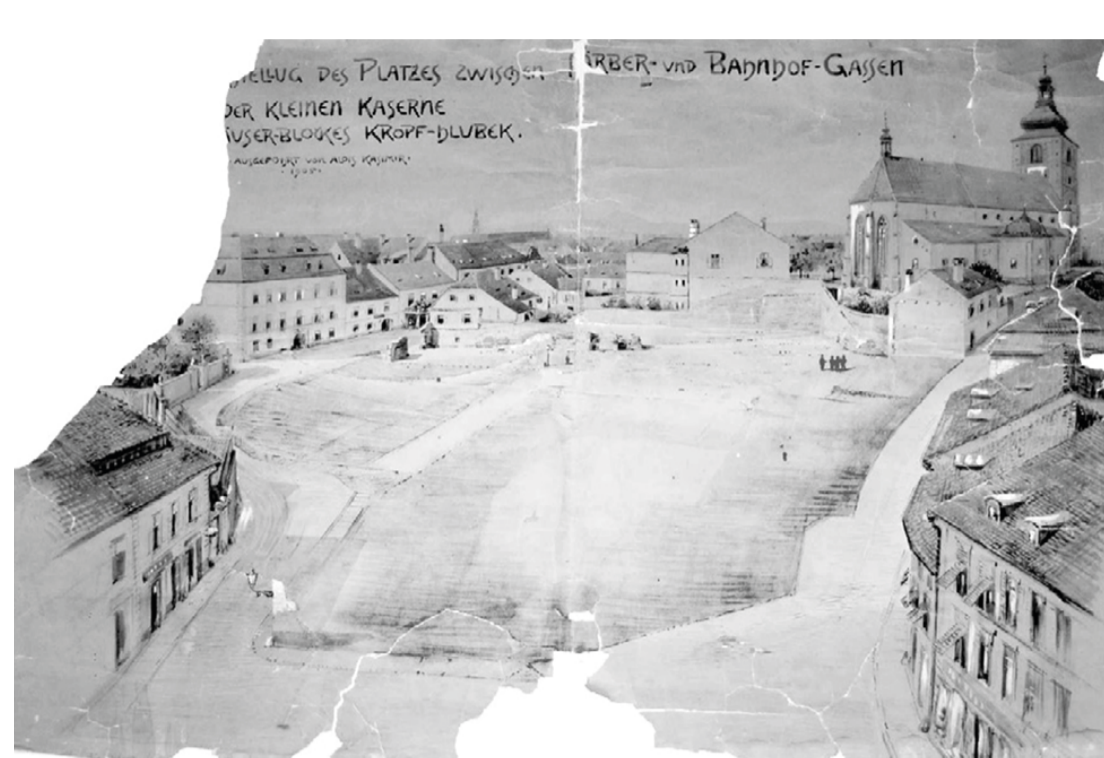 DES PLATZES ZWISCHEN FÄRBER- UND BAHNHOF-GASSEN
DER KLEINEN KASERNE
ÄUSER-BLOCKES KROPF-HLUBEK.
AUSGEFÜHRT VON ALOIS KASIMIR.